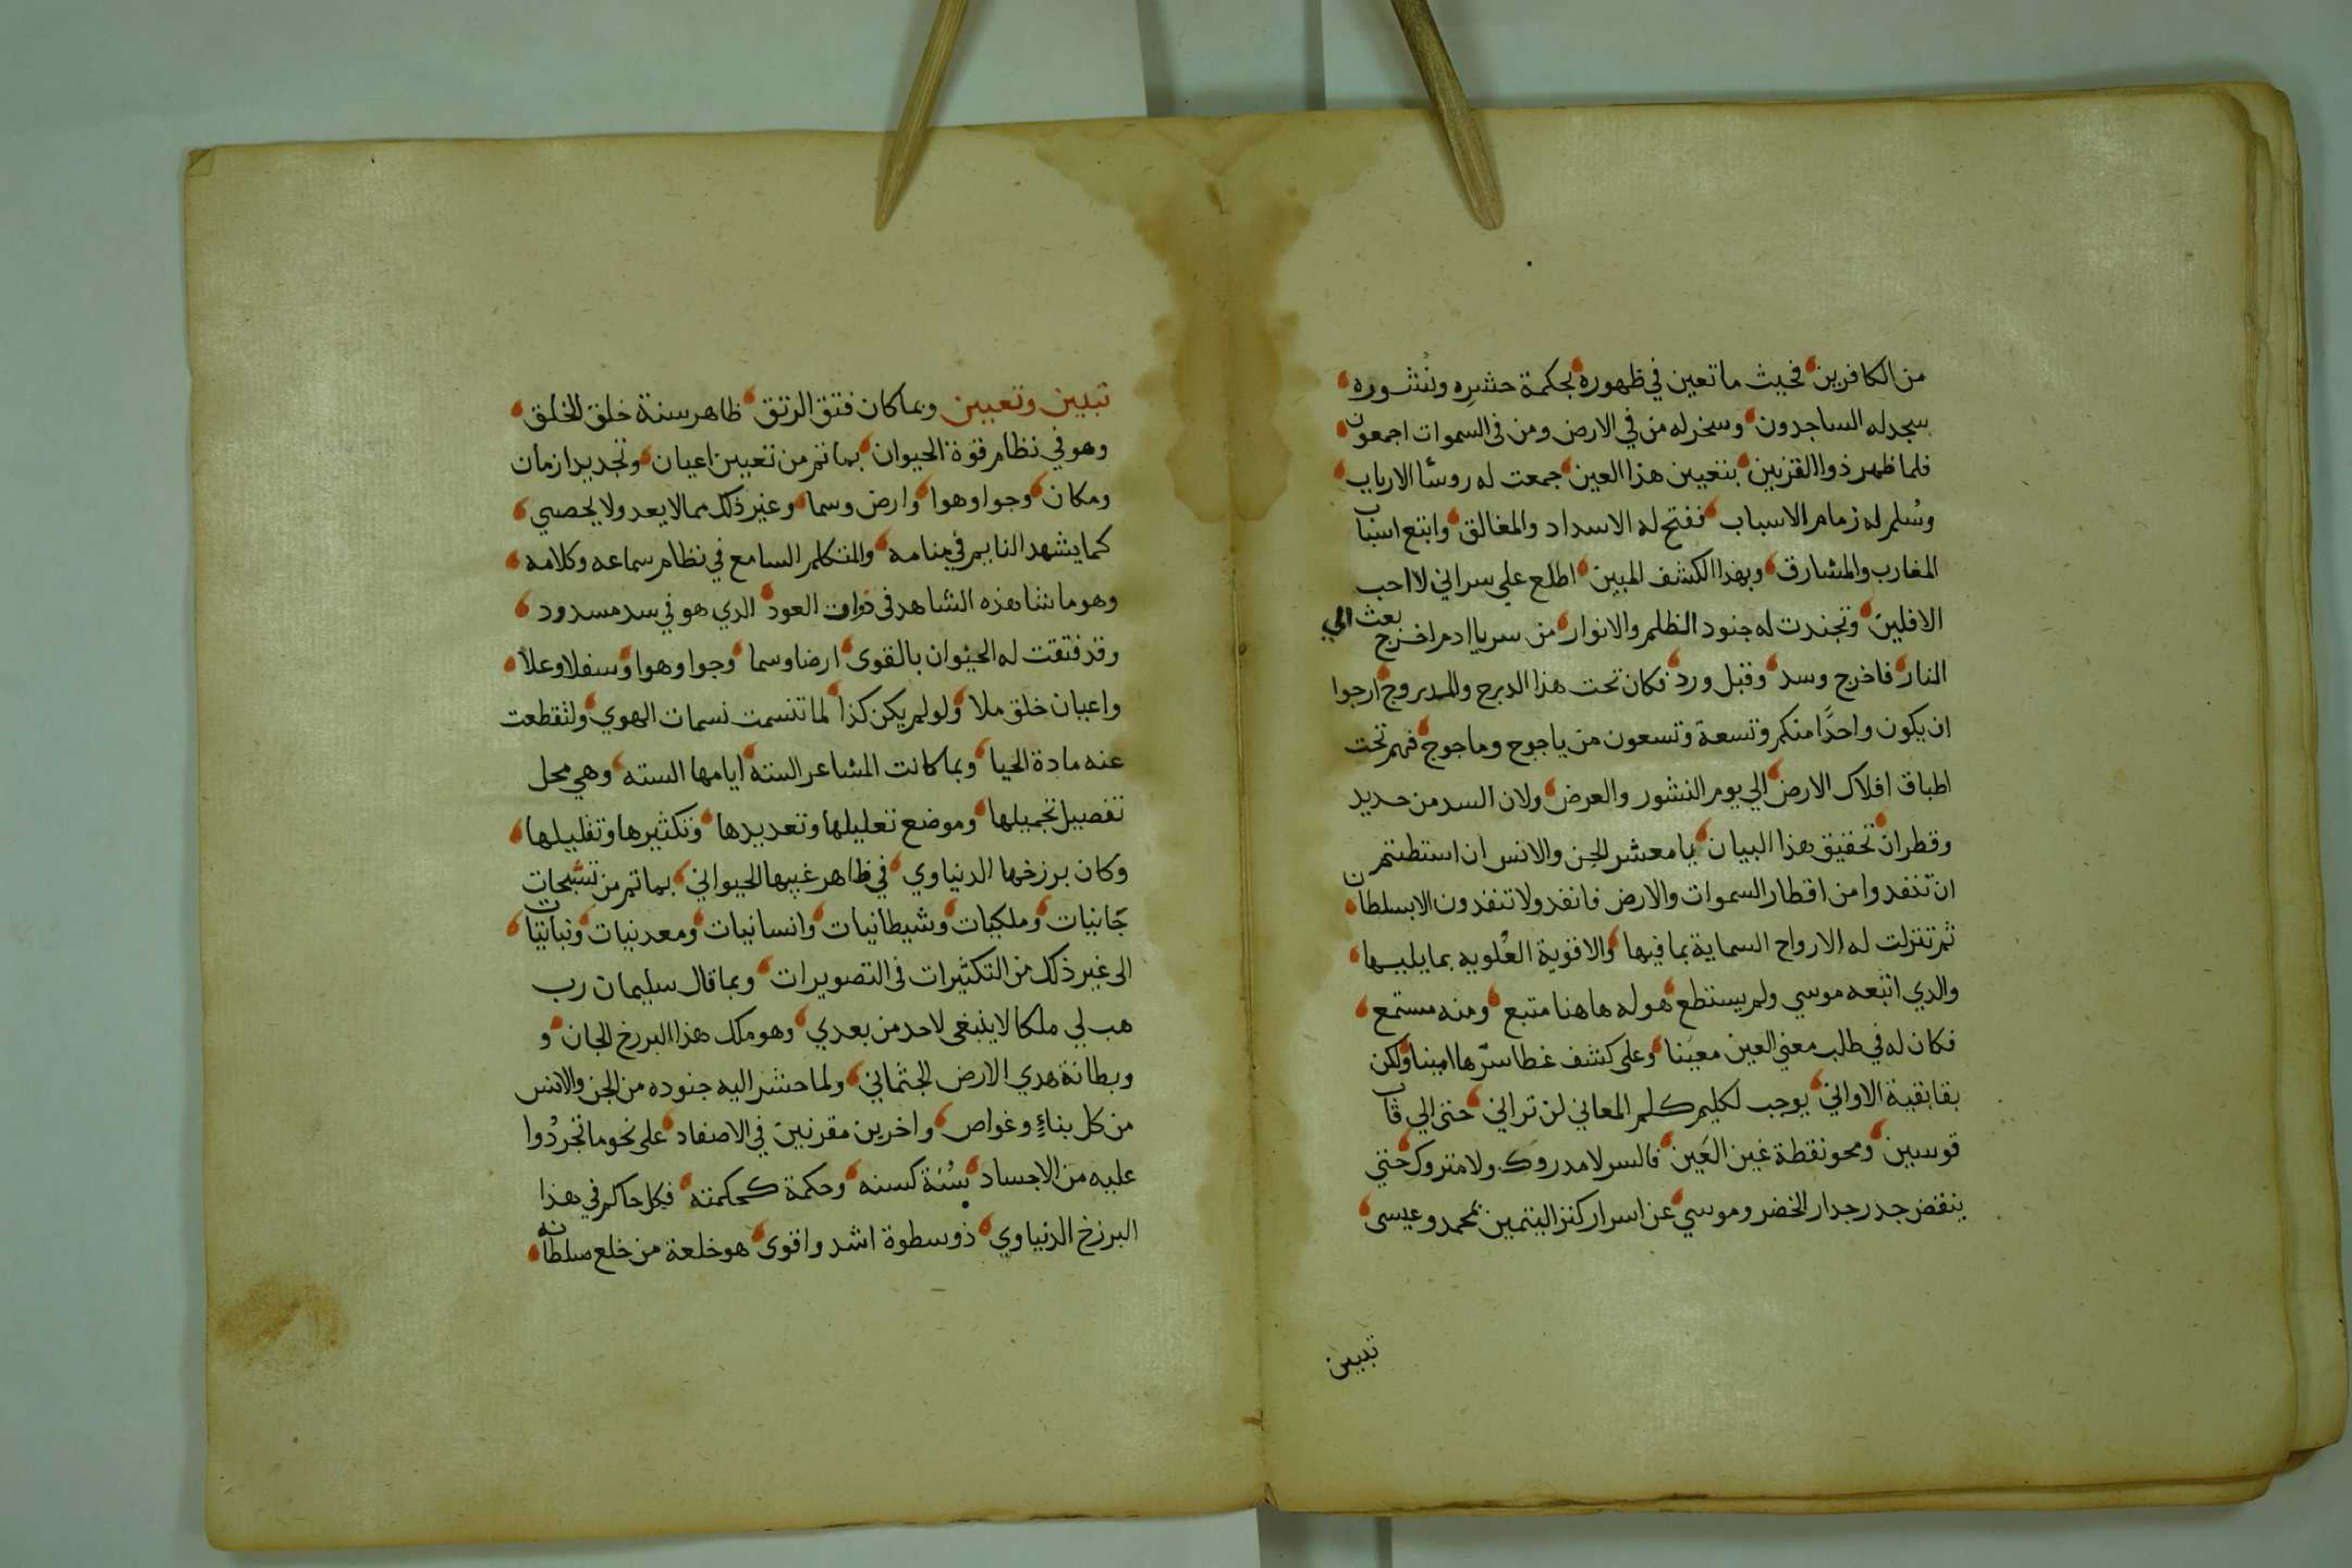 من الكافرين فحيث ما تعين في ظهوره بحكمة حشره ونشوره
سجد له الساجدون وسخر له من في الارض ومن في السموات اجمعون
فلما ظهر ذوا القرنين بتعيين هذا العين جمعت له روسا الارباب
وسُلم له زمام الاسباب ففتح له الاسداد والمغالق واتبع اسباب
المغارب والمشارق وبهذا الكشف المبين اطلع علي سر اني لا احب
الافلين وتجندت له جنود الظلم والانوار من سر يا ادم اخرج بعث الي
النار فاخرج وسد وقبل ورد فكان تحت هذا الدرج والمدروج ارجوا
ان يكون واحدًا منكم وتسعة وتسعون من ياجوج وماجوج فهم تحت
اطباق افلاك الارض الي يوم النشور والعرض ولان السد من حديد
وقطران تحقيق هذا البيان يا معشر الجن والانس ان استطعتم
ان تنفدوا من اقطار السموات والارض فانفدو لا تنفدون الا بسلطان
ثم تنزلت له الارواح السماية بما فيها والاقوية العُلويه بما يليها
والدي اتبعه موسي ولم يستطع هو له هاهنا متبع ومنه مستمع
فكان له في طلب معني العين معينا وعلى كشف غطا سرّها امينا ولكن
بقا بقية الاواني يوجب لكليم كلم المعاني لن تراني حتى الي قاب
قوسين ومحو نقطة غين العَين فالسر لا مدروك ولا متروك حتي
ينقض جدر جدار الخضر وموسي عن اسرار كنز اليتمين بمحمد وعيسى
تبيين
تبيين وتعيين وبما كان فتق الرتق ظاهر سنة خلق الخلق
وهو في نظام قوة الحيوان بما تم من تعيين اعيان وتجديد ازمان
ومكان وجوا وهوا وارض وسما وغير ذلك مما لا يعد ولا يحصي
كما يشهد النايم في منامه والمتكلم السامع في نظام سماعه وكلامه
وهو ما شاهده الشاهد في العود الدي هو في سد مسدود
وقد فتقت له الحيوان بالقوى ارضا وسما وجوا وهوا وسفلا وعلا
واعيان خلق ملا ولو لم يكن كذا لما تنسمت نسمات الهوي ولتقطعت
عنه مادة الحيا وبما كانت المشاعر السته ايامها السته وهي محل
تفصيل تجميلها وموضع تعليلها وتعديدها وتكثيرها وتقليلها
وكان برزخها الدنياوي في ظاهر غيبها الحيواني بما تم من تشبحات
جَانيات وملكيات وشيطانيات وانسانيات ومعدنيات ونباتيات
الى غير ذلك من التكثيرات في التصويرات وبما قال سليمان رب
هب لي ملكا لا ينبغي لاحد من بعدي وهو ملك هذا البرزخ الجان و
وبطانة هدي الارض الجثماني ولما حشر اليه جنوده من الجن والانس
من كل بناءٍ وغواص واخرين مقرنين في الاصفاد على نحو ما تجردُوا
عليه من الاجساد سُنة كسنه وحكمة كحكمته فكل حاكم في هذا
البرزخ الدنياوي ذو سطوة اشد واقوى هو خلعة من خلع سلطانه